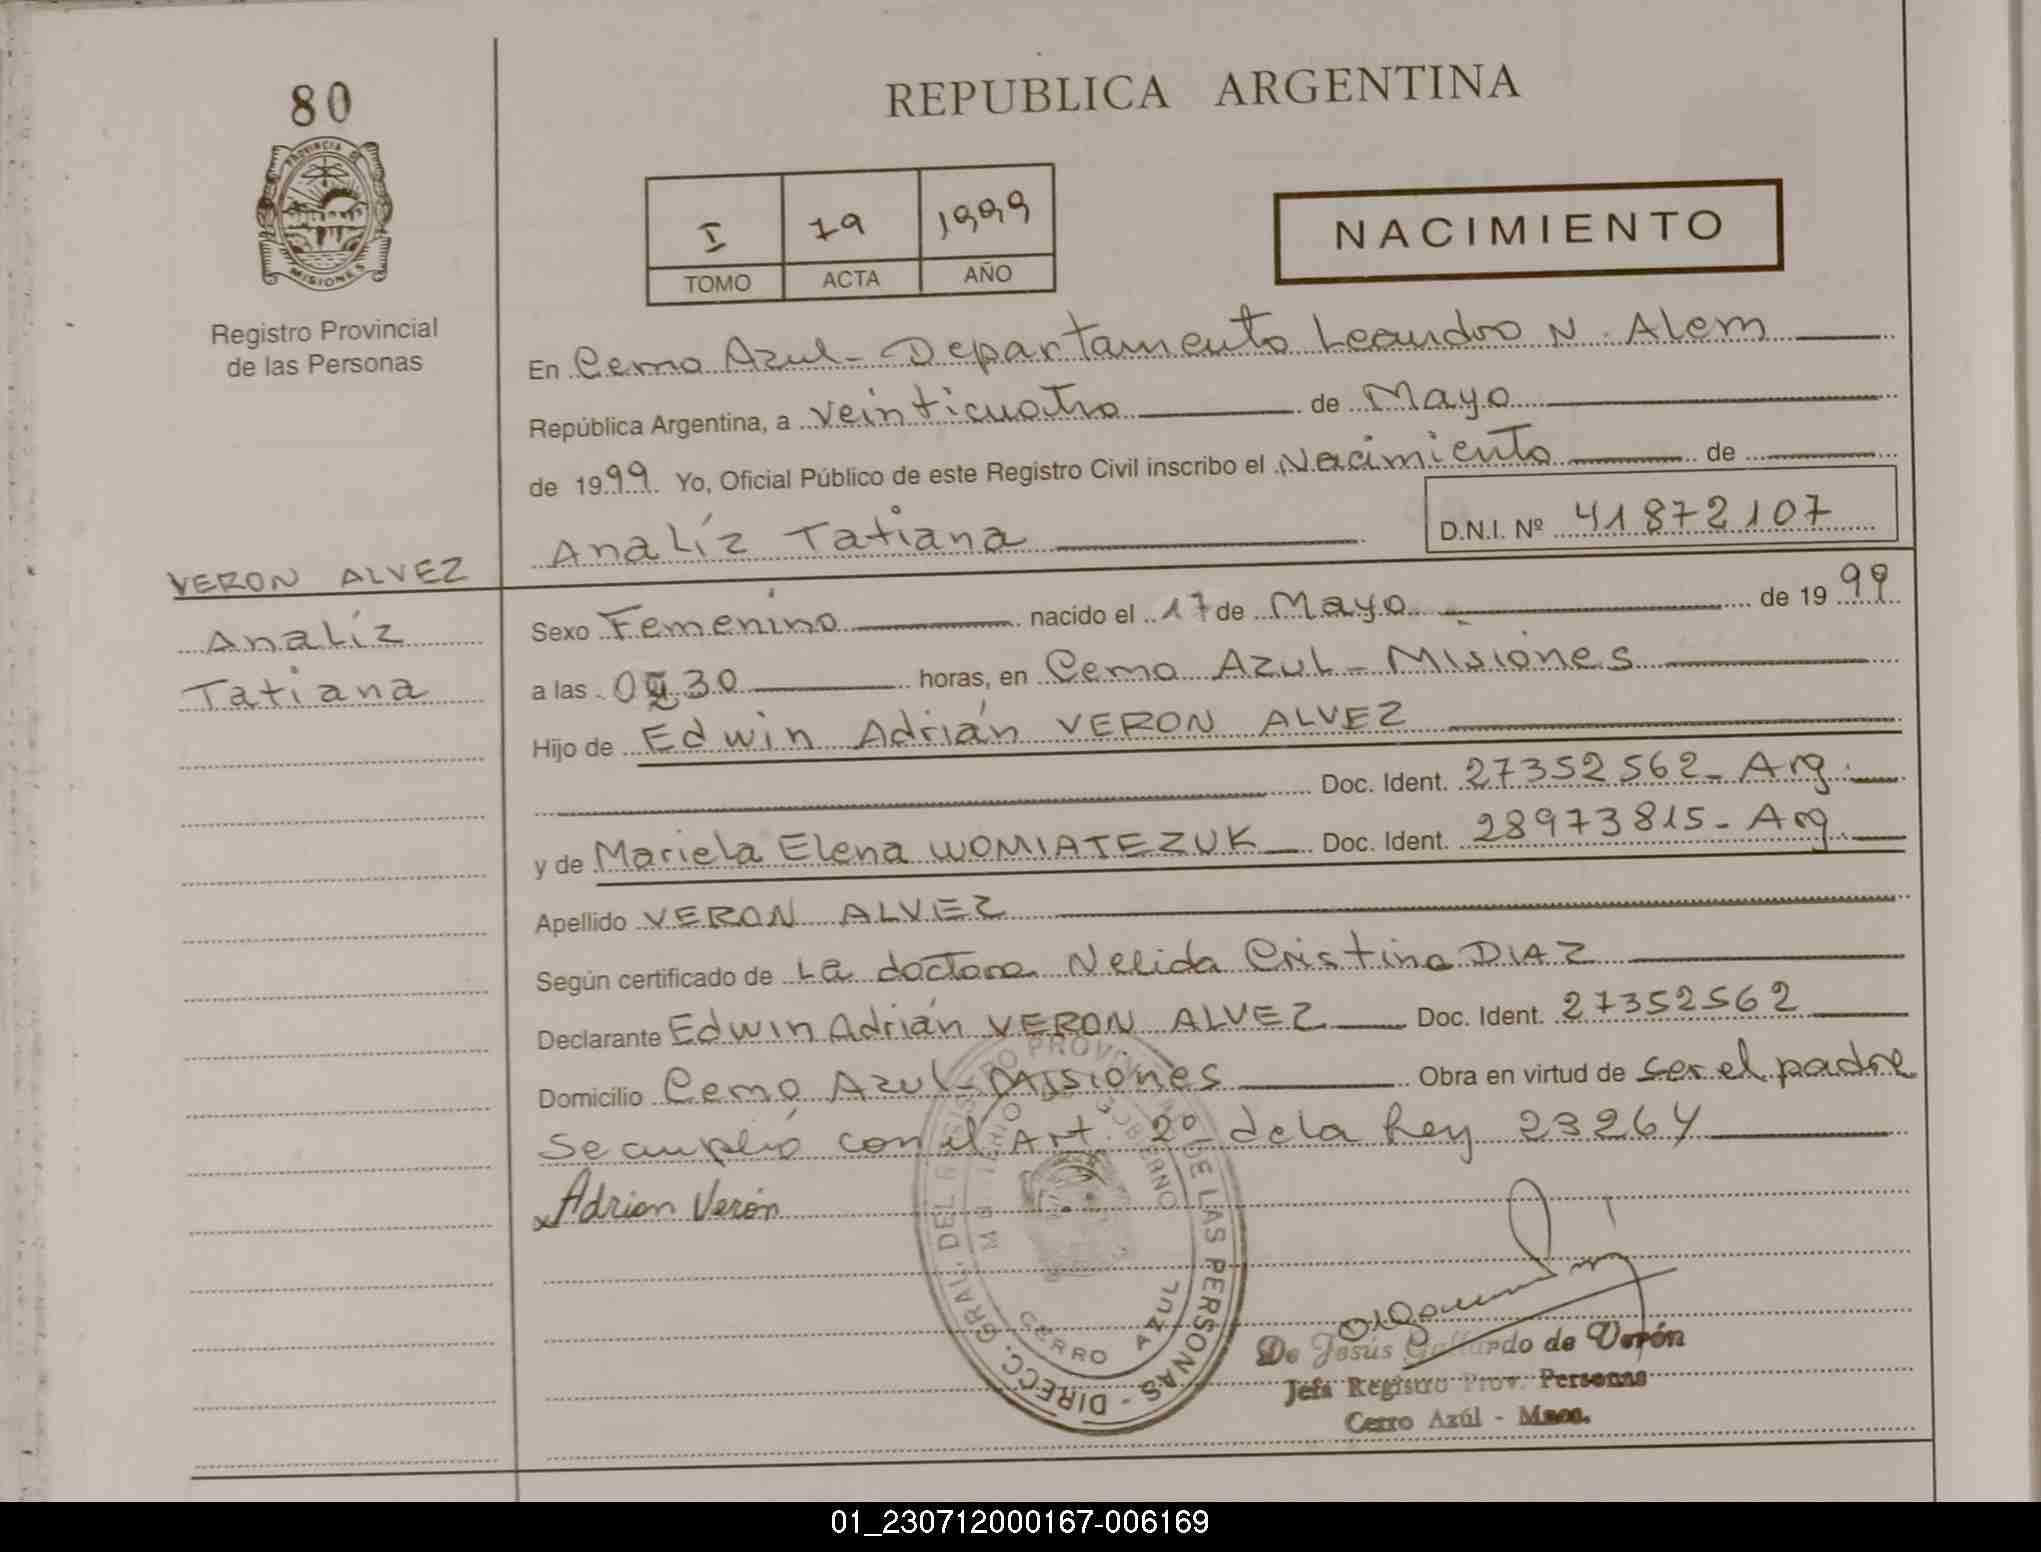 80
REPUBLICA ARGENTINA
PROVINCIA DE MISIONES
I 79 1999
TOMO ACTA AÑO
NACIMIENTO
Registro Provincial
de las Personas
En Cerro Azul - Departamento Leandro N. Alem
República Argentina, a veinticuatro de Mayo
de 1999 Yo, Oficial Público de este Registro Civil inscribo el Nacimiento de
Analíz Tatiana D.N.I. Nº 41872107
VERON ALVEZ
Analíz
Tatiana
Sexo Femenino nacido el 17 de Mayo de 1999
a las 30 horas, en Cerro Azul - Misiones
Hijo de Edwin Adrián VERON ALVEZ
Doc. Ident. 27352562 - Arg.
y de Mariela Elena WOMIATEZUK Doc. Ident. 28973815 - Arg.
Apellido VERON ALVEZ
Según certificado de La doctora Nelida Cristina DIAZ
Declarante Edwin Adrián VERON ALVEZ Doc. Ident. 27352562
Domicilio Cerro Azul - Misiones Obra en virtud de ser el padre
Se cumplió con el Art. 2º de la Ley 23264
Adrian Verón
DIRECC. GRAL. DEL REGISTRO PROVINCIAL DE LAS PERSONAS
GOBIERNO
CERRO AZUL
De Jesús Gallardo de Verón
Jefa Registro Prov. Personas
Cerro Azúl - Mnes.
01_230712000167-006169